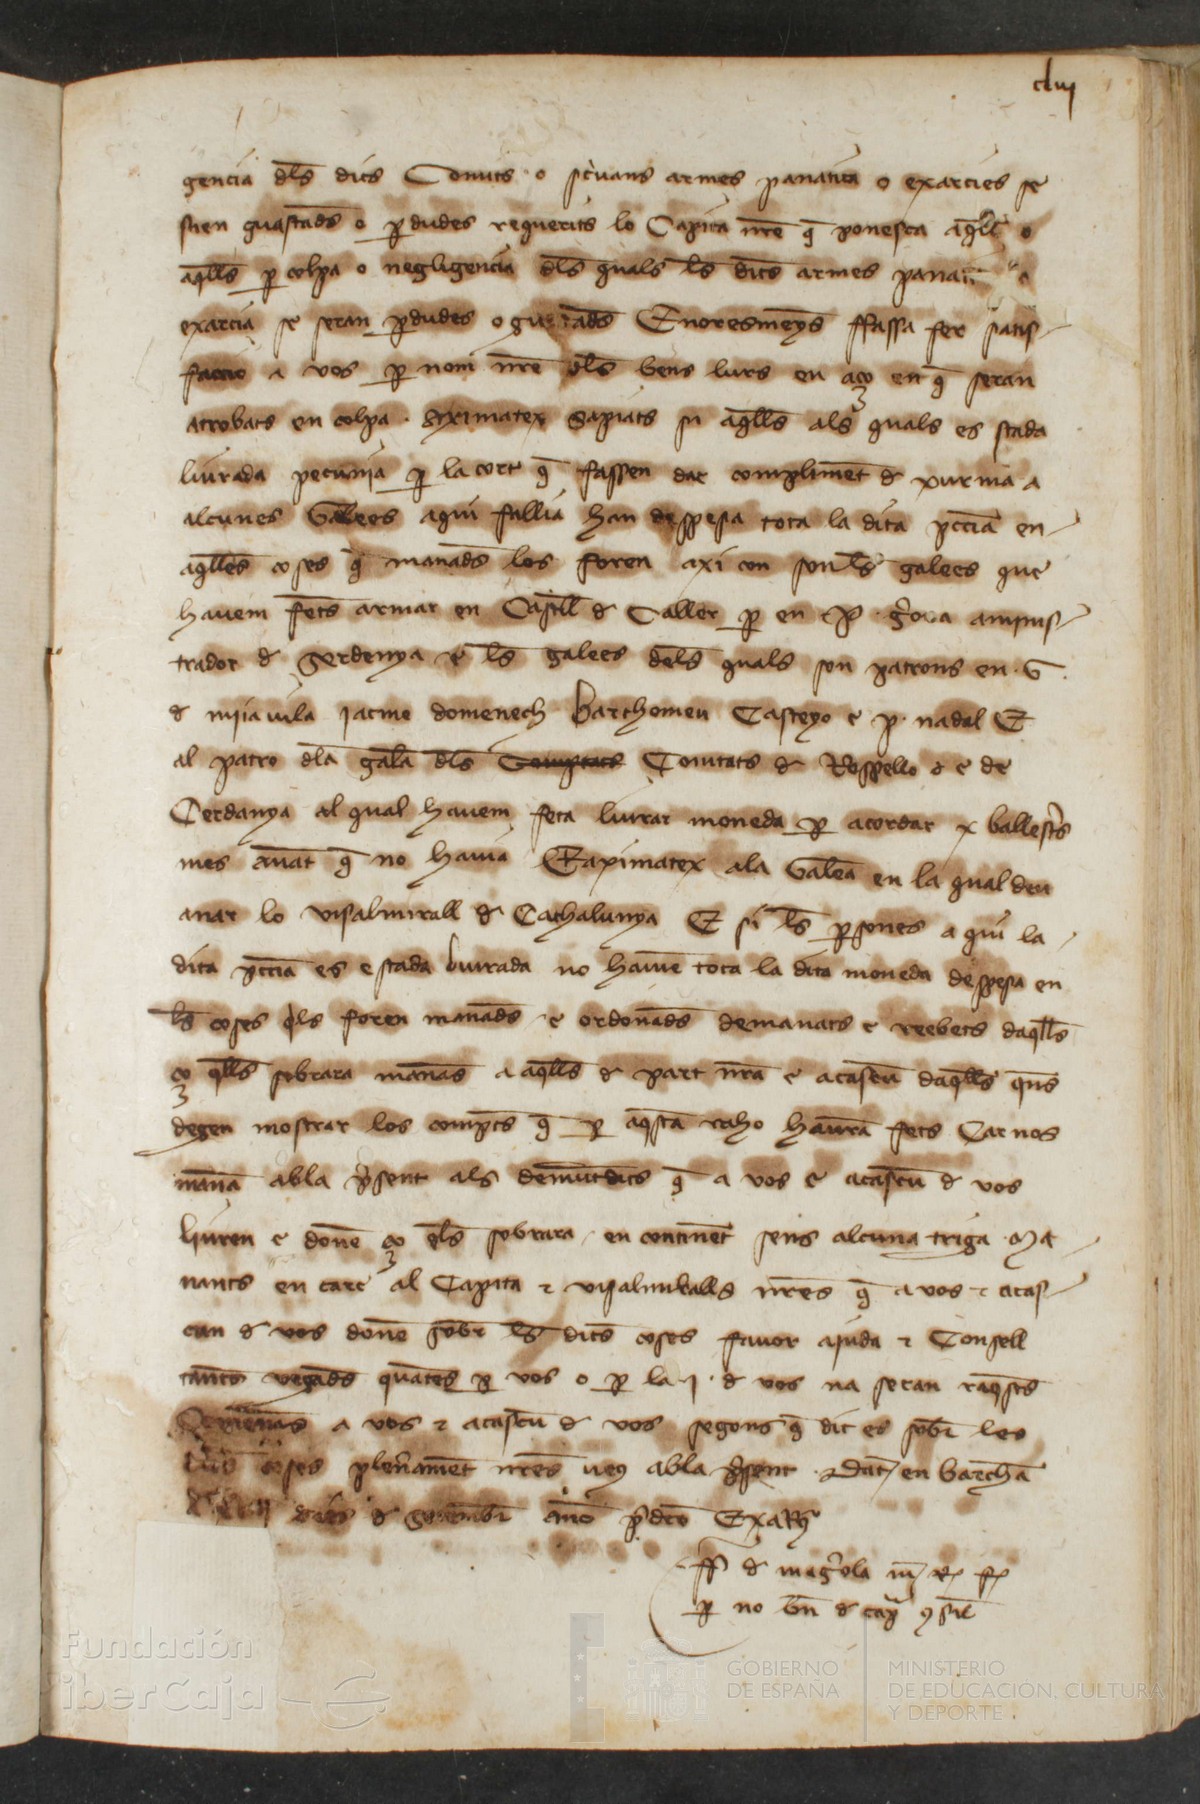 clvij
gencia dls dits Comits o scivans armes panatica o exarcies se
sien guastads o pdudes requerits lo Capita nre q ponesca aqll o
aqlls p colpa o negligencia dls quals ls dits armes panati o
exarcia se seran pdudes o gu tads Enoresmeys ffassa fer satis
faccio a vos p nom nre dls bens lurs en aço en q seran
atrobats en colpa . Aximatex sapiats si aqlls als quals es stada
liurada pecunia p la cort q fassen dar compliment d xurma a
alcunes Galees aqui fallia han despesa tota la dita pccia en
aqlles coses q manads los foren axi con son ls galees que
havem fets armar en Castll d Caller p en .P. amiis
trador d Serdenya e ls galees dels quals son patrons en .G.
d miiavila Jacme domenech Barthomeu Casteyo e p. nadal E
al patro dla galea dls Comptats Comtats d Rossello d e de
Cerdanya al qual havem feta liurar moneda p acordar x ballests
mes avat q no havia Eaximatex ala Galea en la qual deu
anar lo visalmirall d Cathalunya E si ls psones a qui la
dita pccia es estada liurada no havie tota la dita moneda despesa en
ls coses qls foren manads e ordonads demanats e reebets daqlls
ço qlls sobrara manas a aqlls d part nra e acascu daqlls qns
degen mostrar los compts q p aqsta raho haura fets Car nos
mana abla psent als demutdits q a vos e acascu d vos
liuren e done ço qls sobrara en continet sens alcuna triga . Ma
nants en care al Capita e visalmiralls nres q a vos e acas
cun d vos done sobr ls dits coses favor ajuda e Consell
tants vegads quantes p vos o p la .j. d vos na seran raqsts
a vos e acascu d vos segons q dit es sobr les
coses plenament nres veus abla psent . Dat en barchna
dies d Setembr año pdco Exa Ry
p no